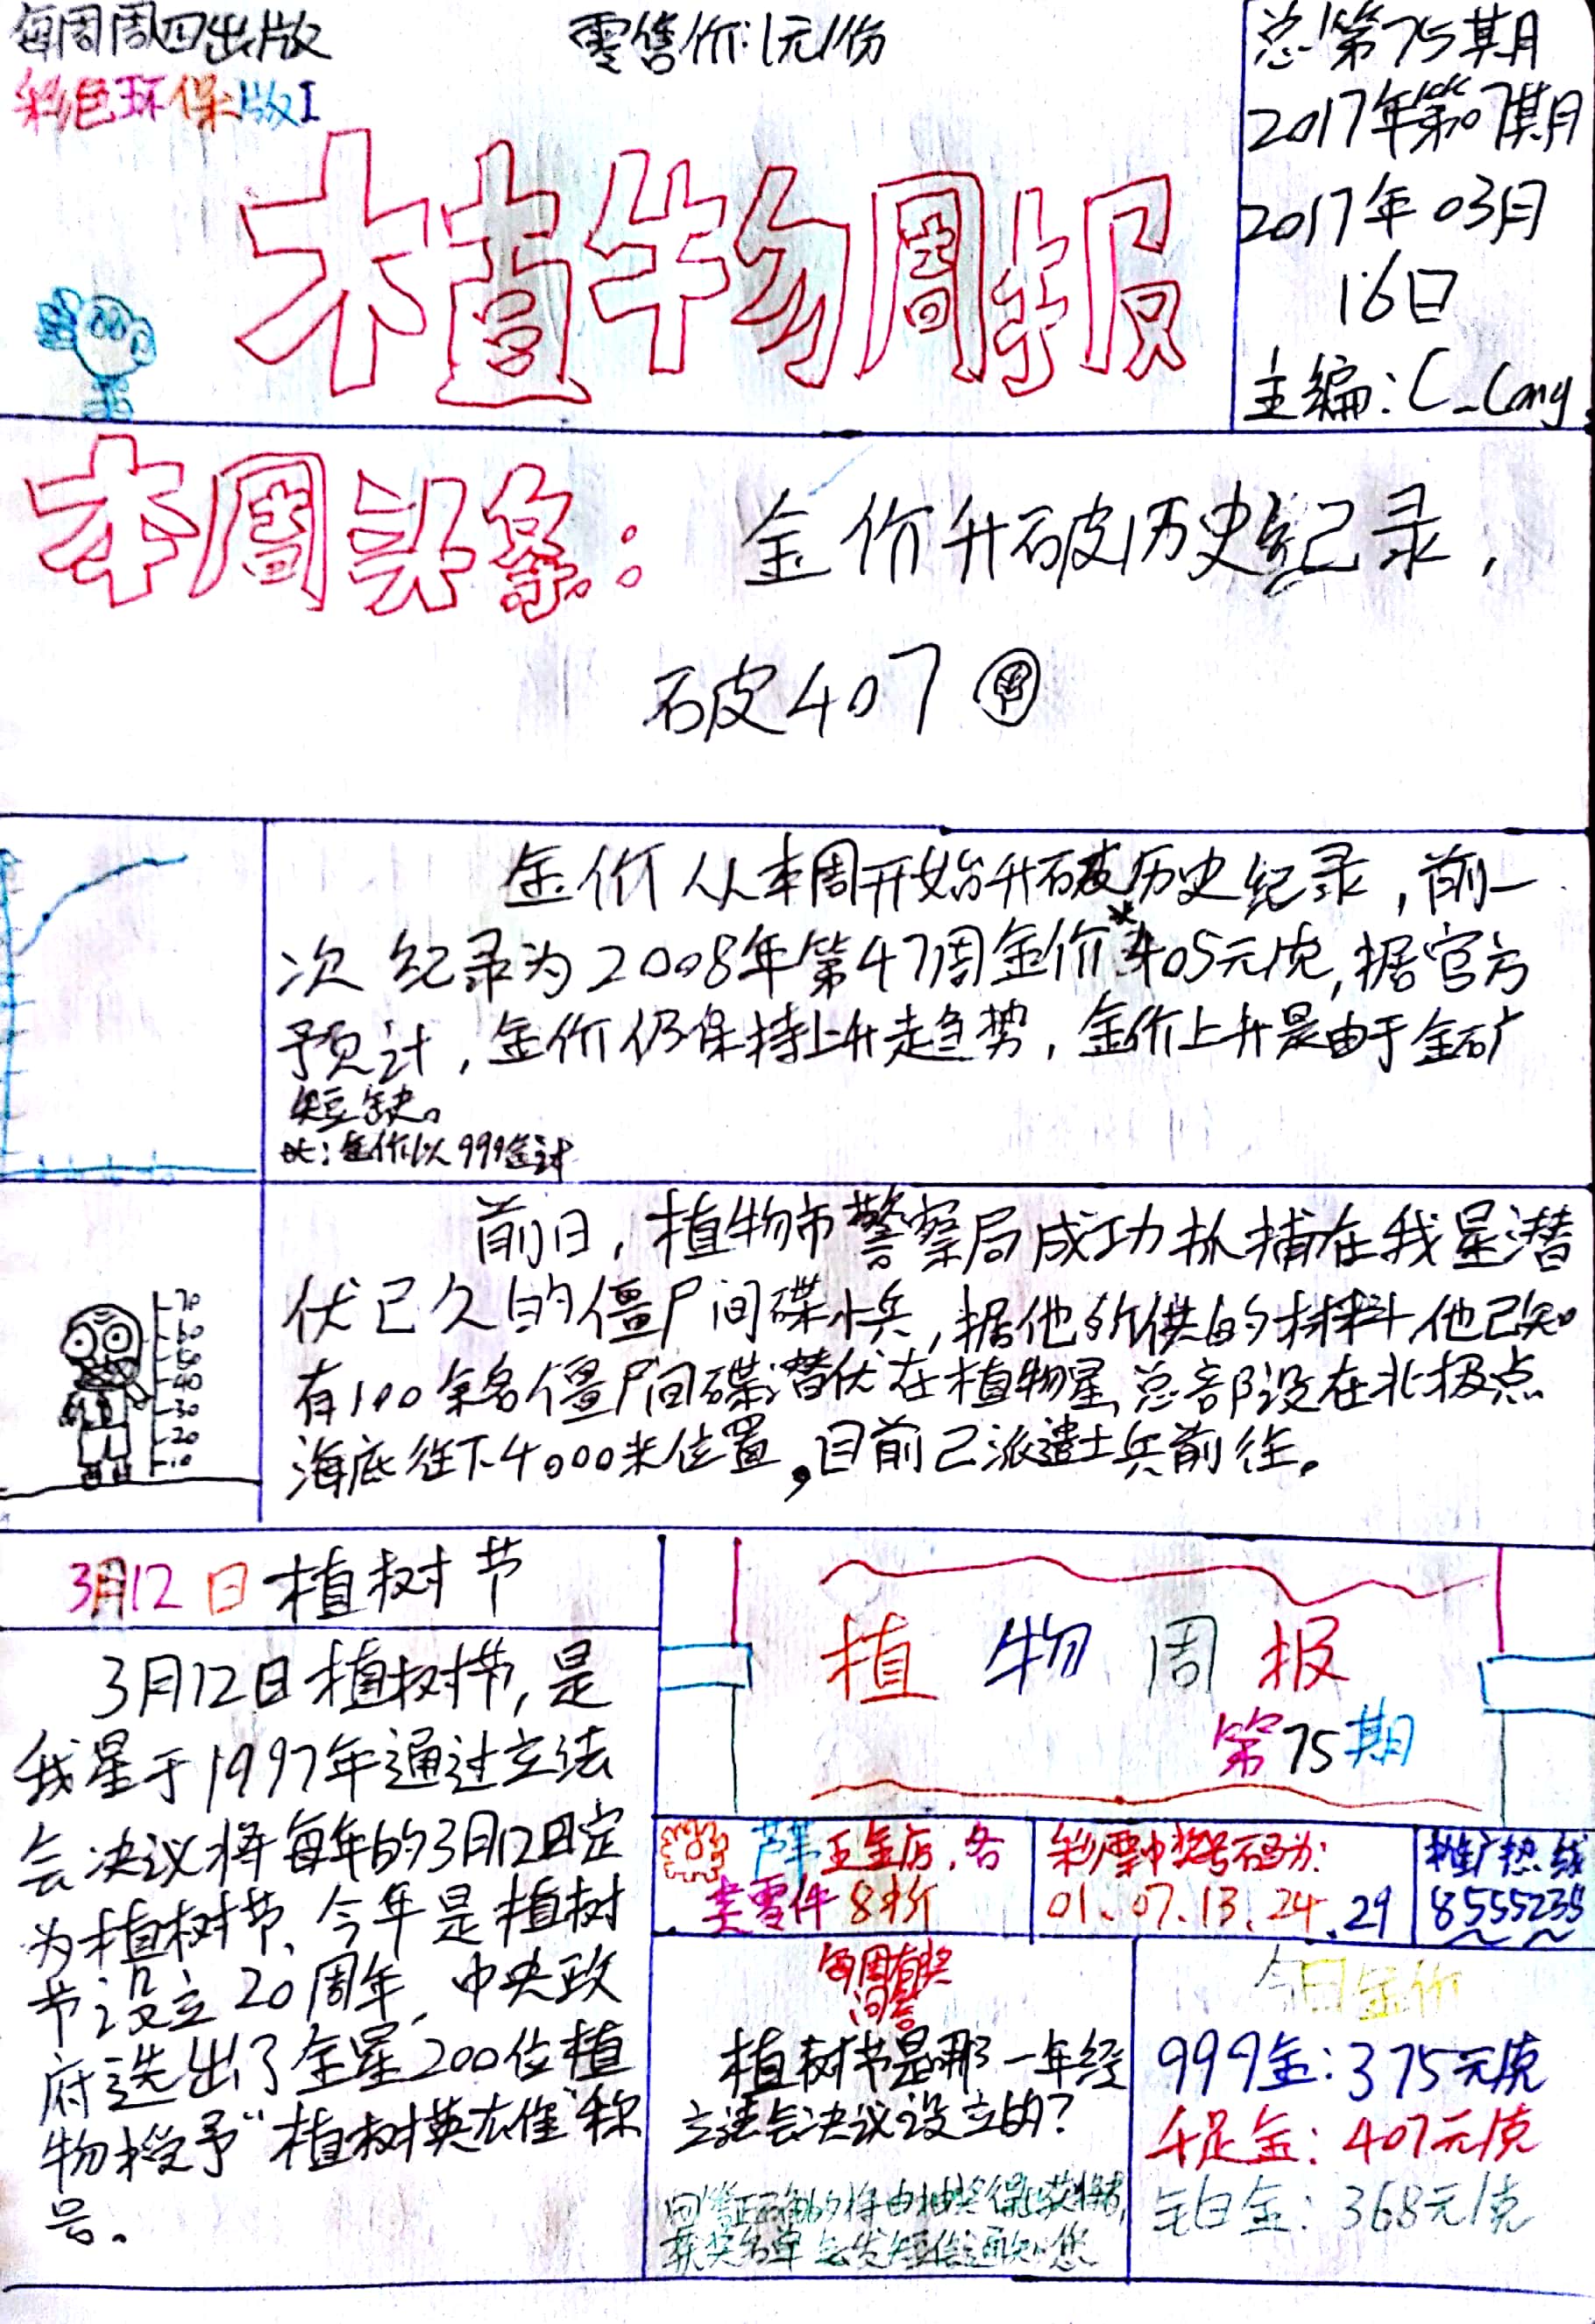 每周周四出版
零售价:1元/份
彩色环保版I
总第75期
2017年第07期
2017年03月
16日
主编:C_Cong
植物周报
本周头条:
金价升破历史纪录,
破407
金价从本周开始升破历史纪录,前一
次纪录为2008年第47周金价*405元/克,据官方
预计,金价仍保持上升趋势,金价上升是由于金矿
短缺。
*:金价以999金计
前日,植物市警察局成功抓捕在我星潜
伏已久的僵尸间碟小兵,据他所供的材料,他已知
有100余名僵尸间碟潜伏在植物星,总部设在北极点
海底往下4000米位置,目前已派遣士兵前往。
70
60
50
40
30
20
10
3月12日植树节
3月12日植树节,是
我星于1997年通过立法
会决议将每年的3月12日定
为植树节、今年是植树
节设立20周年,中央政
府选出了全星200位植
物授予“植树英雄”称
号。
植物周报
第75期
芦苇五金店,各
类零件8折
彩票中奖号码为:
01、07、13、24、29
推广热线
8555235
每周有奖
问答
植树节是哪一年经
立法会决议设立的?
回答正确的将由抽奖得出获奖者,
获奖名单会发短信通知您
今日金价
999金:375元/克
千足金:407元/克
铂白金:368元/克